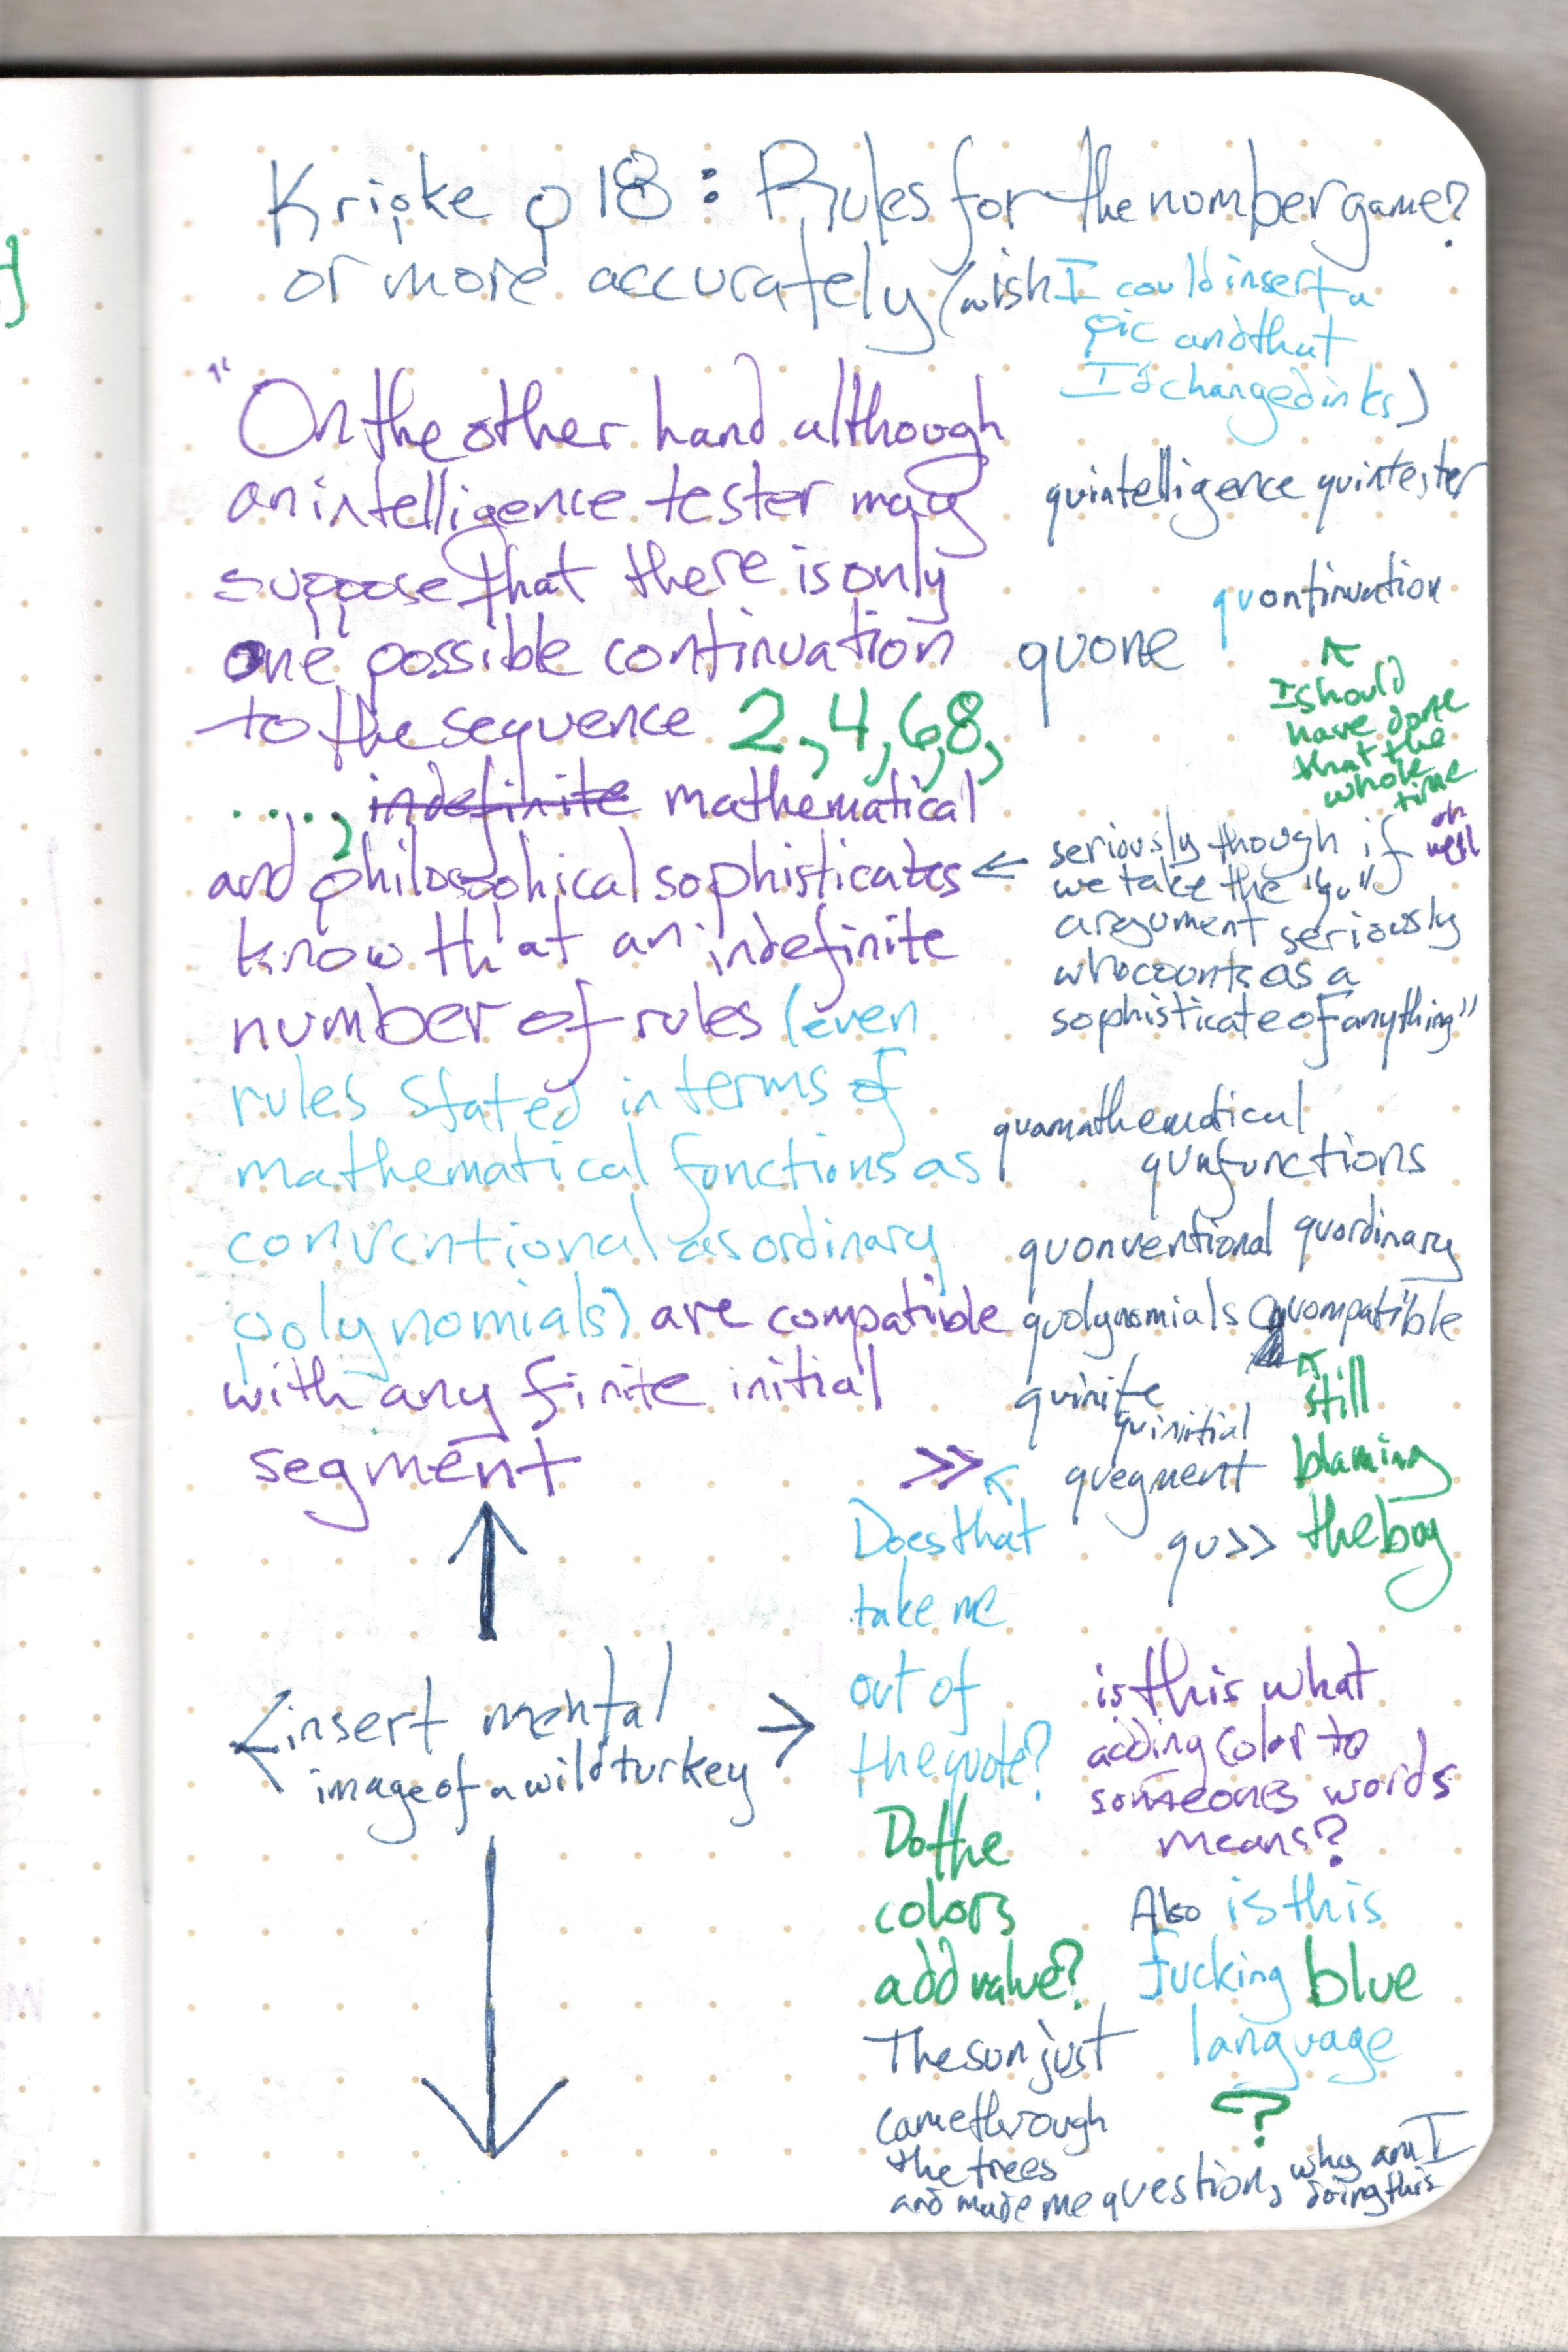 Kripke p 18 : Rules for the number game?
or more accurately (wish I could insert a
pic and that
I'd changed inks)
"On the other hand although
an intelligence tester may
suppose that there is only
one possible continuation
to the sequence 2, 4, 6, 8,
...., indefinite mathematical
and philosophical sophisticates
know that an indefinite
number of rules (even
rules stated in terms of
mathematical functions as
conventional as ordinary
polynomials) are compatible
with any finite initial
segment >>
<insert mental
image of a wild turkey >
quintelligence quintester
quontinuation
quone
I should
have done
that the
whole
time
oh
well
seriously though if
we take the "qu"
argument seriously
who counts as a
sophisticate of anything"
quamathematical
qunfunctions
quonventional quordinary
quolynomials quompatible
quinite
quinitial
quegment
qu>>
still
blaming
the boy
Does that
take me
out of
the quote?
Do the
colors
add value?
The sun just
came through
the trees
and made me question, why am I
doing this
is this what
adding color to
someones words
means?
Also is this
fucking blue
language
?